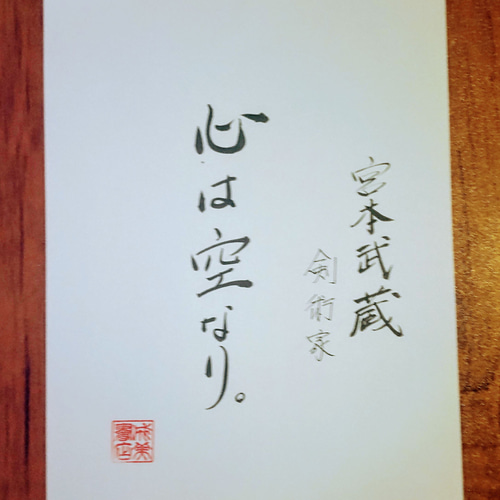 宮本武蔵
剣術家
心は空なり。